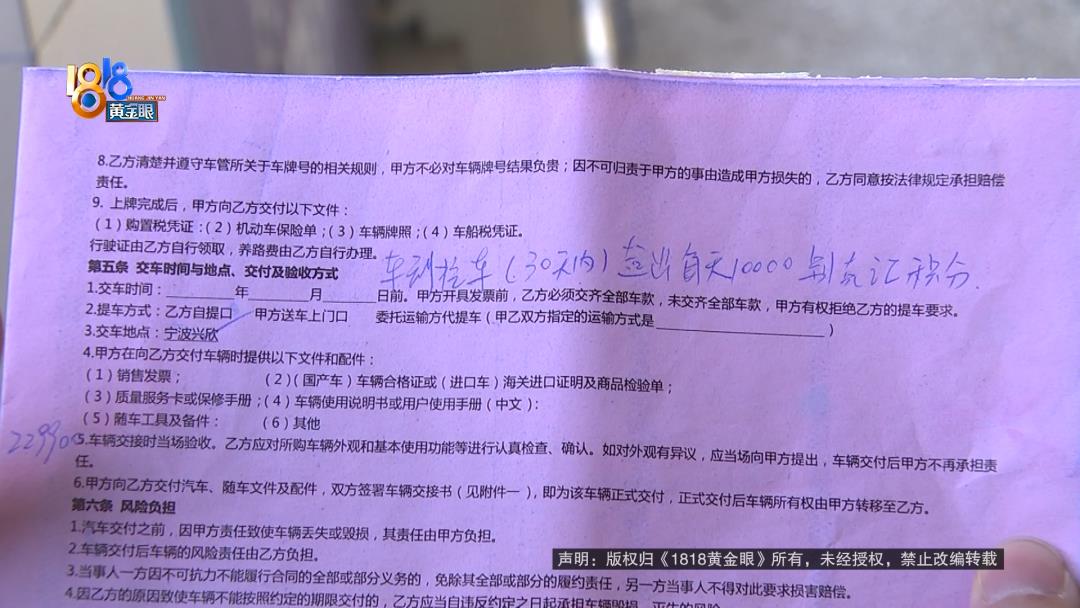 1818
HUANG JIN YAN
黄金眼
8.乙方清楚并遵守车管所关于车牌号的相关规则，甲方不必对车辆牌号结果负责；因不可归责于甲方的事由造成甲方损失的，乙方同意按法律规定承担赔偿
责任。
9. 上牌完成后，甲方向乙方交付以下文件：
（1）购置税凭证：（2）机动车保险单；（3）车辆牌照；（4）车船税凭证。
行驶证由乙方自行领取，养路费由乙方自行办理。
车到提车（30天内）超出每天10000别克汇积分.
第五条 交车时间与地点、交付及验收方式
1.交车时间：________年________月________日前。甲方开具发票前，乙方必须交齐全部车款，未交齐全部车款，甲方有权拒绝乙方的提车要求。
2.提车方式：乙方自提口 甲方送车上门口 委托运输方代提车（甲乙双方指定的运输方式是____________________）
3.交车地点：宁波兴欣
4.甲方在向乙方交付车辆时提供以下文件和配件：
（1）销售发票； （2）（国产车）车辆合格证或（进口车）海关进口证明及商品检验单；
（3）质量服务卡或保修手册；（4）车辆使用说明书或用户使用手册（中文）：
（5）随车工具及备件： （6）其他
229900
5.车辆交接时当场验收。乙方应对所购车辆外观和基本使用功能等进行认真检查、确认。如对外观有异议，应当场向甲方提出，车辆交付后甲方不再承担责
任。
6.甲方向乙方交付汽车、随车文件及配件，双方签署车辆交接书（见附件一），即为该车辆正式交付，正式交付后车辆所有权由甲方转移至乙方。
第六条 风险负担
1.汽车交付之前，因甲方责任致使车辆丢失或毁损，其责任由甲方负担。
2.车辆交付后车辆的风险责任由乙方负担。
3.当事人一方因不可抗力不能履行合同的全部或部分义务的，免除其全部或部分的履约责任，另一方当事人不得对此要求损害赔偿。
4.因乙方的原因致使车辆不能按照约定的期限交付的，乙方应当自违反约定之日起承担车辆毁损、灭失的风险
声明：版权归《1818黄金眼》所有，未经授权，禁止改编转载